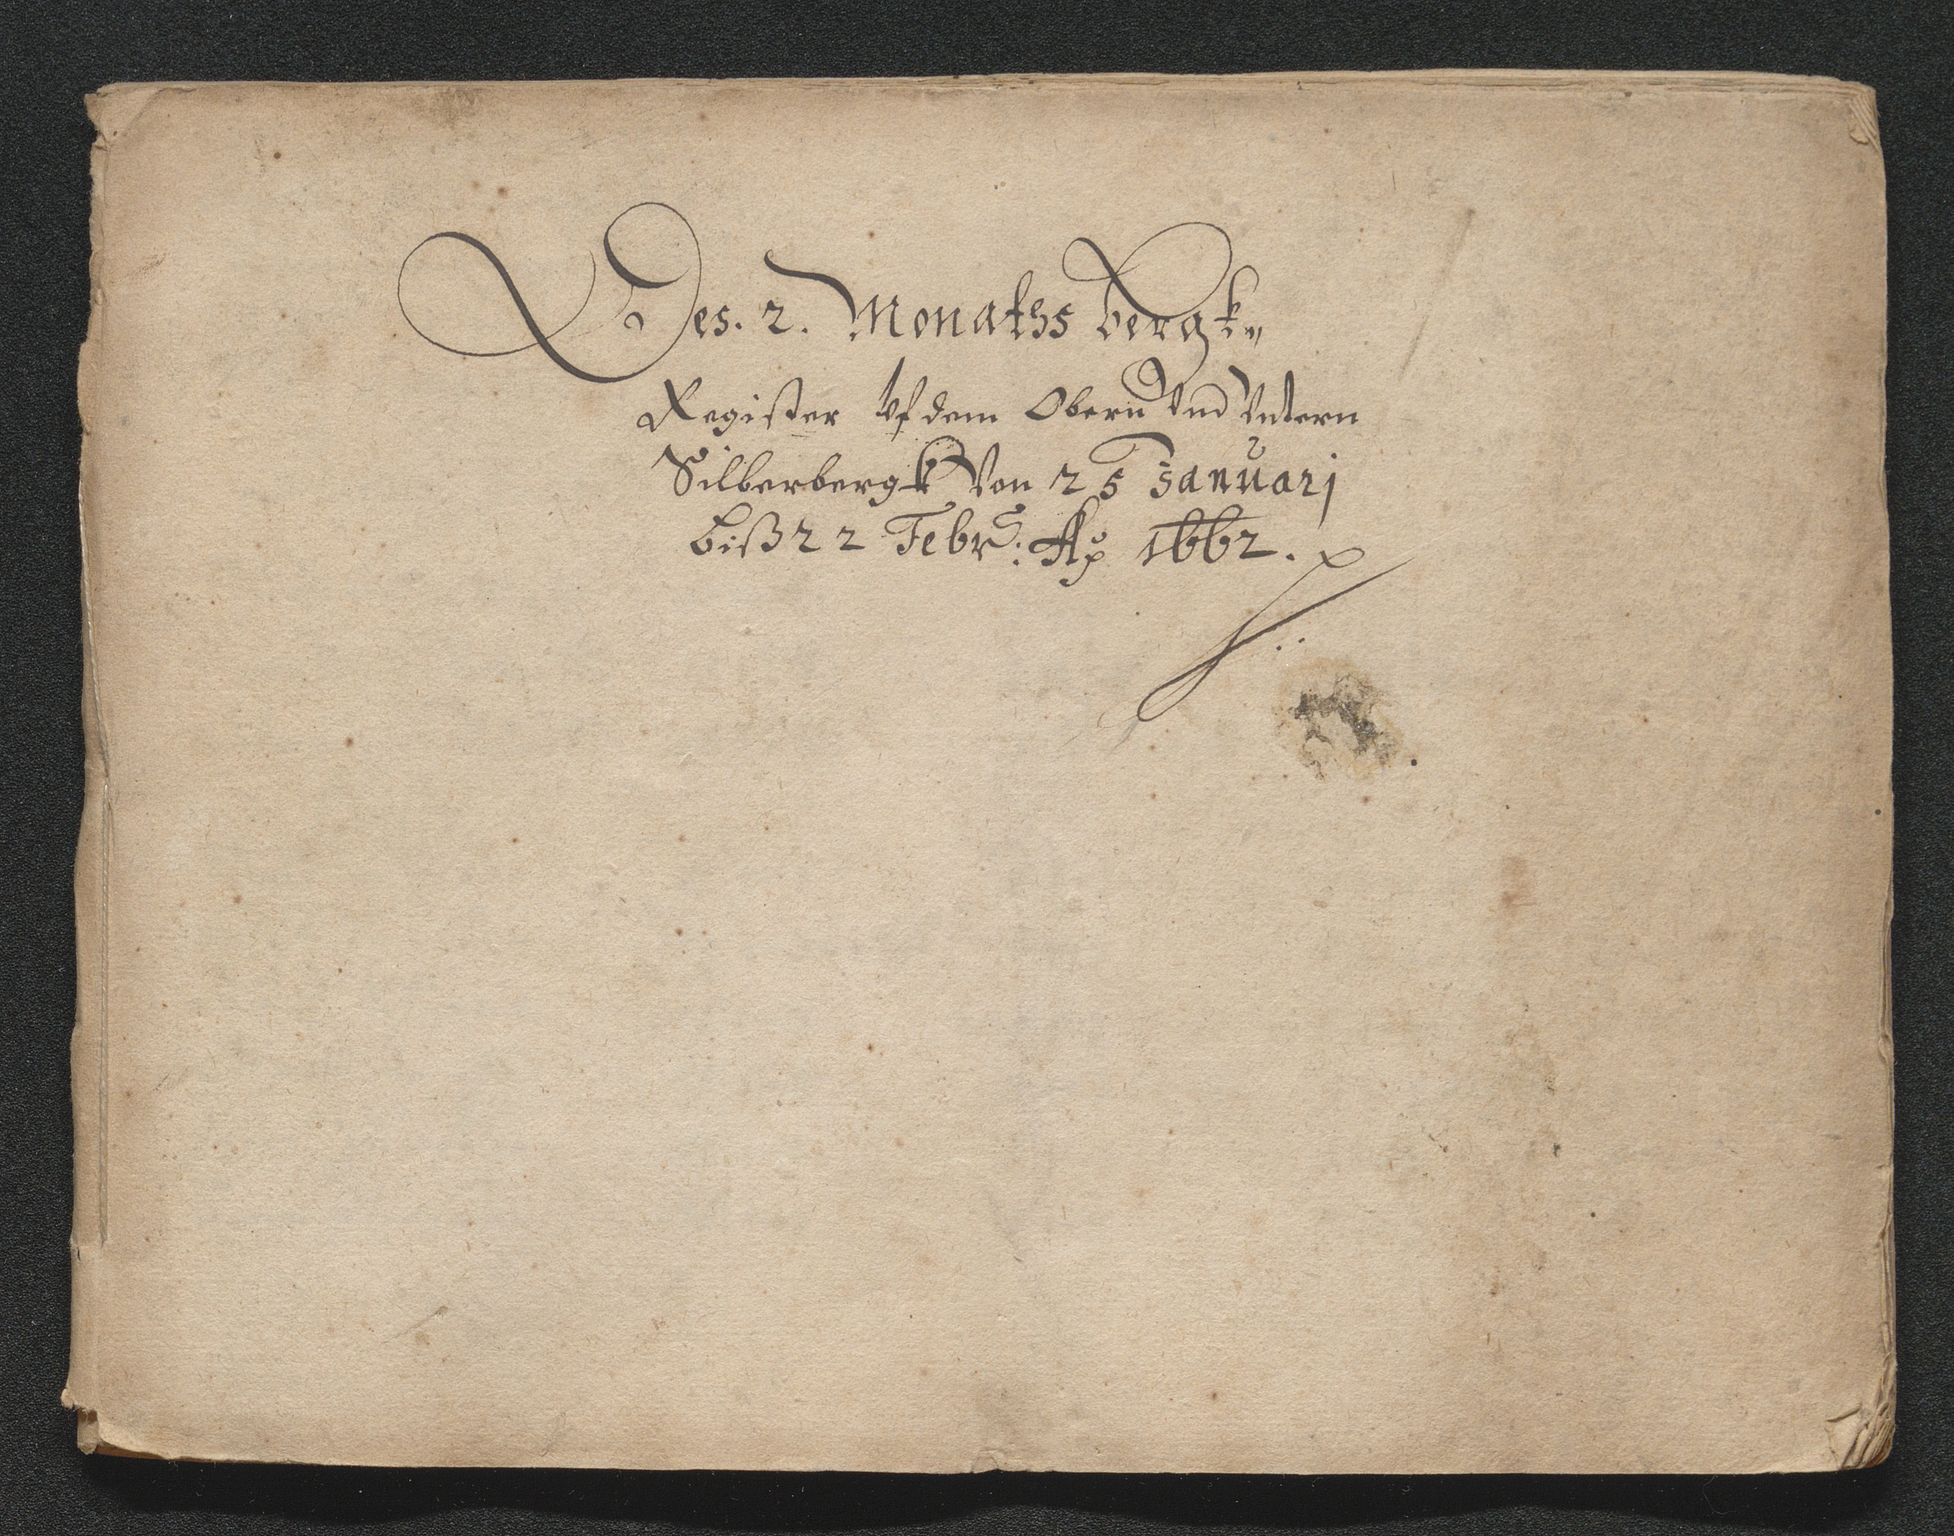 Des. 2. Monaths bergk„
Register uf dem Obern Vnd Vntern
Silberbergk Von 25 Januarj
biß 22 Febr: Ao 1662.